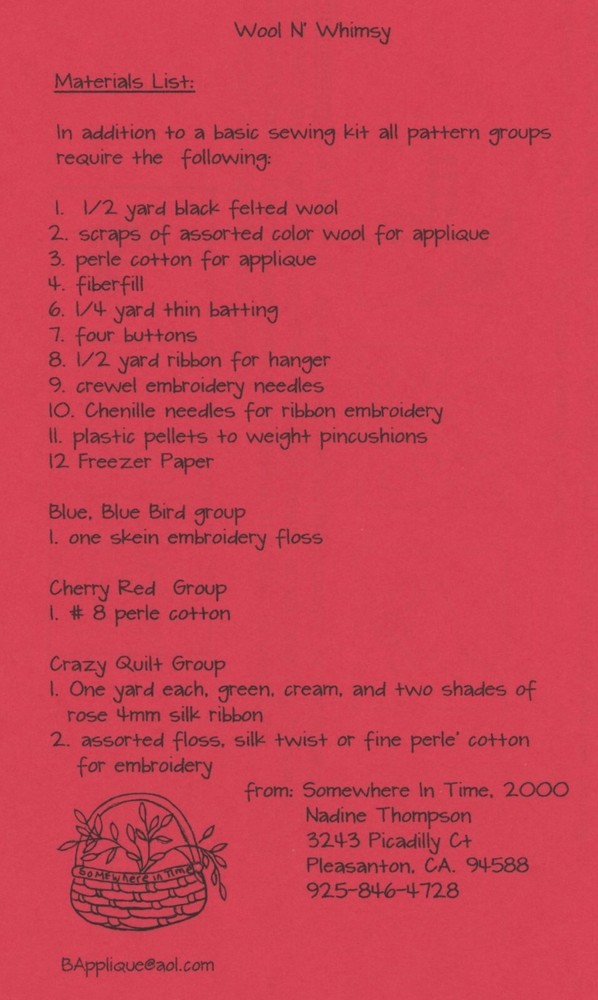 Wool N' Whimsy
Materials List:
In addition to a basic sewing kit all pattern groups
require the following:
1. 1/2 yard black felted wool
2. scraps of assorted color wool for applique
3. perle cotton for applique
4. fiberfill
6. 1/4 yard thin batting
7. four buttons
8. 1/2 yard ribbon for hanger
9. crewel embroidery needles
10. Chenille needles for ribbon embroidery
11. plastic pellets to weight pincushions
12 Freezer Paper
Blue, Blue Bird group
1. one skein embroidery floss
Cherry Red Group
1. # 8 perle cotton
Crazy Quilt Group
1. One yard each, green, cream, and two shades of
rose 4mm silk ribbon
2. assorted floss, silk twist or fine perle' cotton
for embroidery
from: Somewhere In Time, 2000
Nadine Thompson
3243 Picadilly Ct
Pleasanton, CA. 94588
925-846-4728
SoMEwhere in Time
BApplique@aol.com